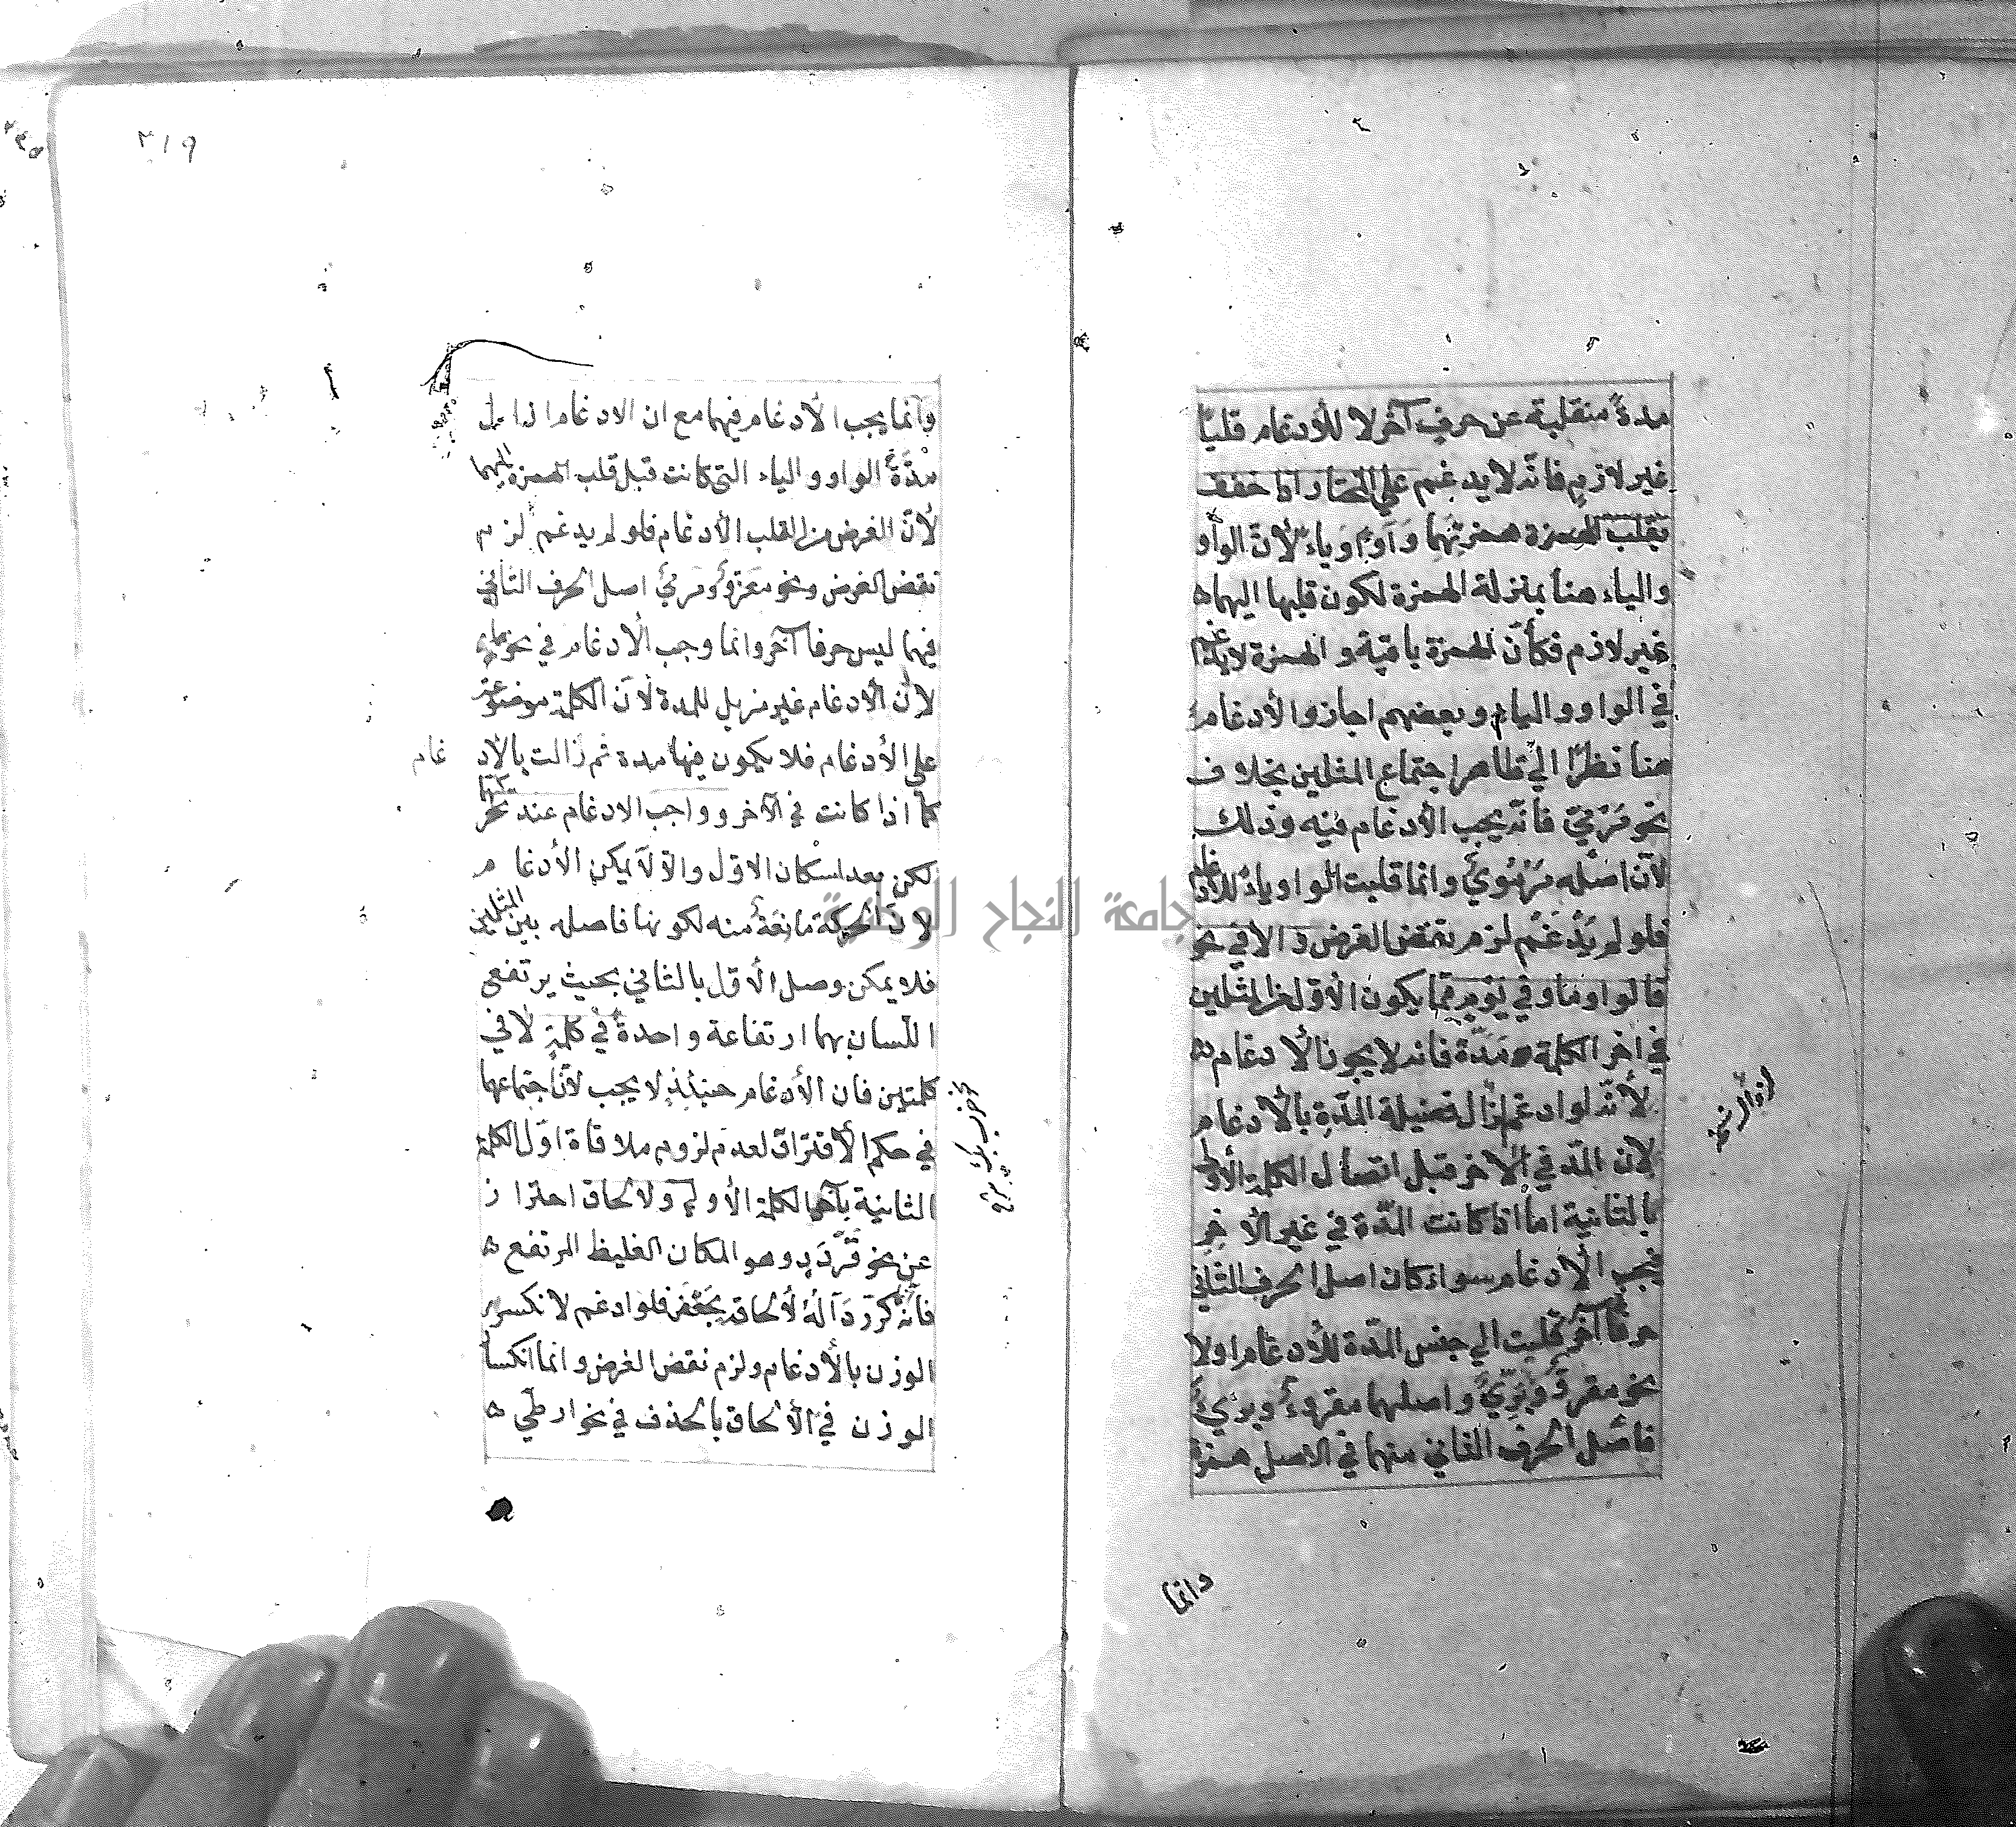 مدة منقلبة عن حرف آخر لا للأدغام قلبًا
غير لازم فانه لا يدغم على المختار اذا خفف
بقلب الهمزة همزتهما واو وياء لأن الواو
والياء هنا بمنزلة الهمزة لكون قلبها اليهما
غير لازم فكأن الهمزة باقية والهمزة لا يدغم
في الواو والياء وبعضهم اجازوا الأدغام
هنا نظرًا الى ظاهر اجتماع المثلين بخلاف
نحو مرمي فانه يجب الأدغام فيه وذلك
لأن اصله مرموي وانما قلبت الواو ياء للأدغام
فلو لم يدغم لزم نقض الغرض والا في نحو
قالوا وما وفي يوم مما يكون الأول من المثلين
في آخر الكلمة مدة فانه لا يجوز الأدغام
لأنه لو ادغم لزال فضيلة المدة بالأدغام
لأن المد في الآخر قبل اتصال الكلمة الأولى
بالثانية اما اذا كانت المدة في غير الآخر
فيجب الأدغام سواء كان اصل الحرف الثاني
حرفا آخر قلبت الى جنس المدة للأدغام اولا
نحو مقروّ وبريّ واصلهما مقروء وبريء
فاصل الحرف الثاني منهما في الاصل همزة
وانما
٣١٩
وانما يجب الأدغام فيهما مع ان الادغام ازال
مدة الواو والياء التي كانت قبل قلب الهمزة اليهما
لأن الغرض من القلب الأدغام فلو لم يدغم لزم
نقض الغرض ونحو مغزو ومرمي اصل الحرف الثاني
فيهما ليس حرفا آخر وانما وجب الأدغام في نحوهما
لأن الأدغام غير مزيل للمدة لأن الكلمة موضوعة
على الأدغام فلا يكون فيها مدة ثم زالت بالأد غام
كما اذا كانت في الآخر وواجب الادغام عند تحركهما
لكن بعد اسكان الاول والا لا يمكن الأدغام
لان الحركة مانعة منه لكونها فاصلة بين المثلين
فلا يمكن وصل الأول بالثاني بحيث يرتفع
اللسان بهما ارتفاعة واحدة في كلمة لا في
كلمتين فان الأدغام حينئذ لا يجب لأن اجتماعهما
في حكم الأفتراق لعدم لزوم ملاقاة اول الكلمة
الثانية بآخر الكلمة الأولى ولا لحاق احتراز
عن نحو قردد وهو المكان الغليظ المرتفع
فانه كرر داله لألحاقه بجعفر فلو ادغم لانكسر
الوزن بالأدغام ولزم نقض الغرض وانما انكسار
الوزن في الألحاق بالحذف في نحو ارطى
جامعة النجاح الوطنية